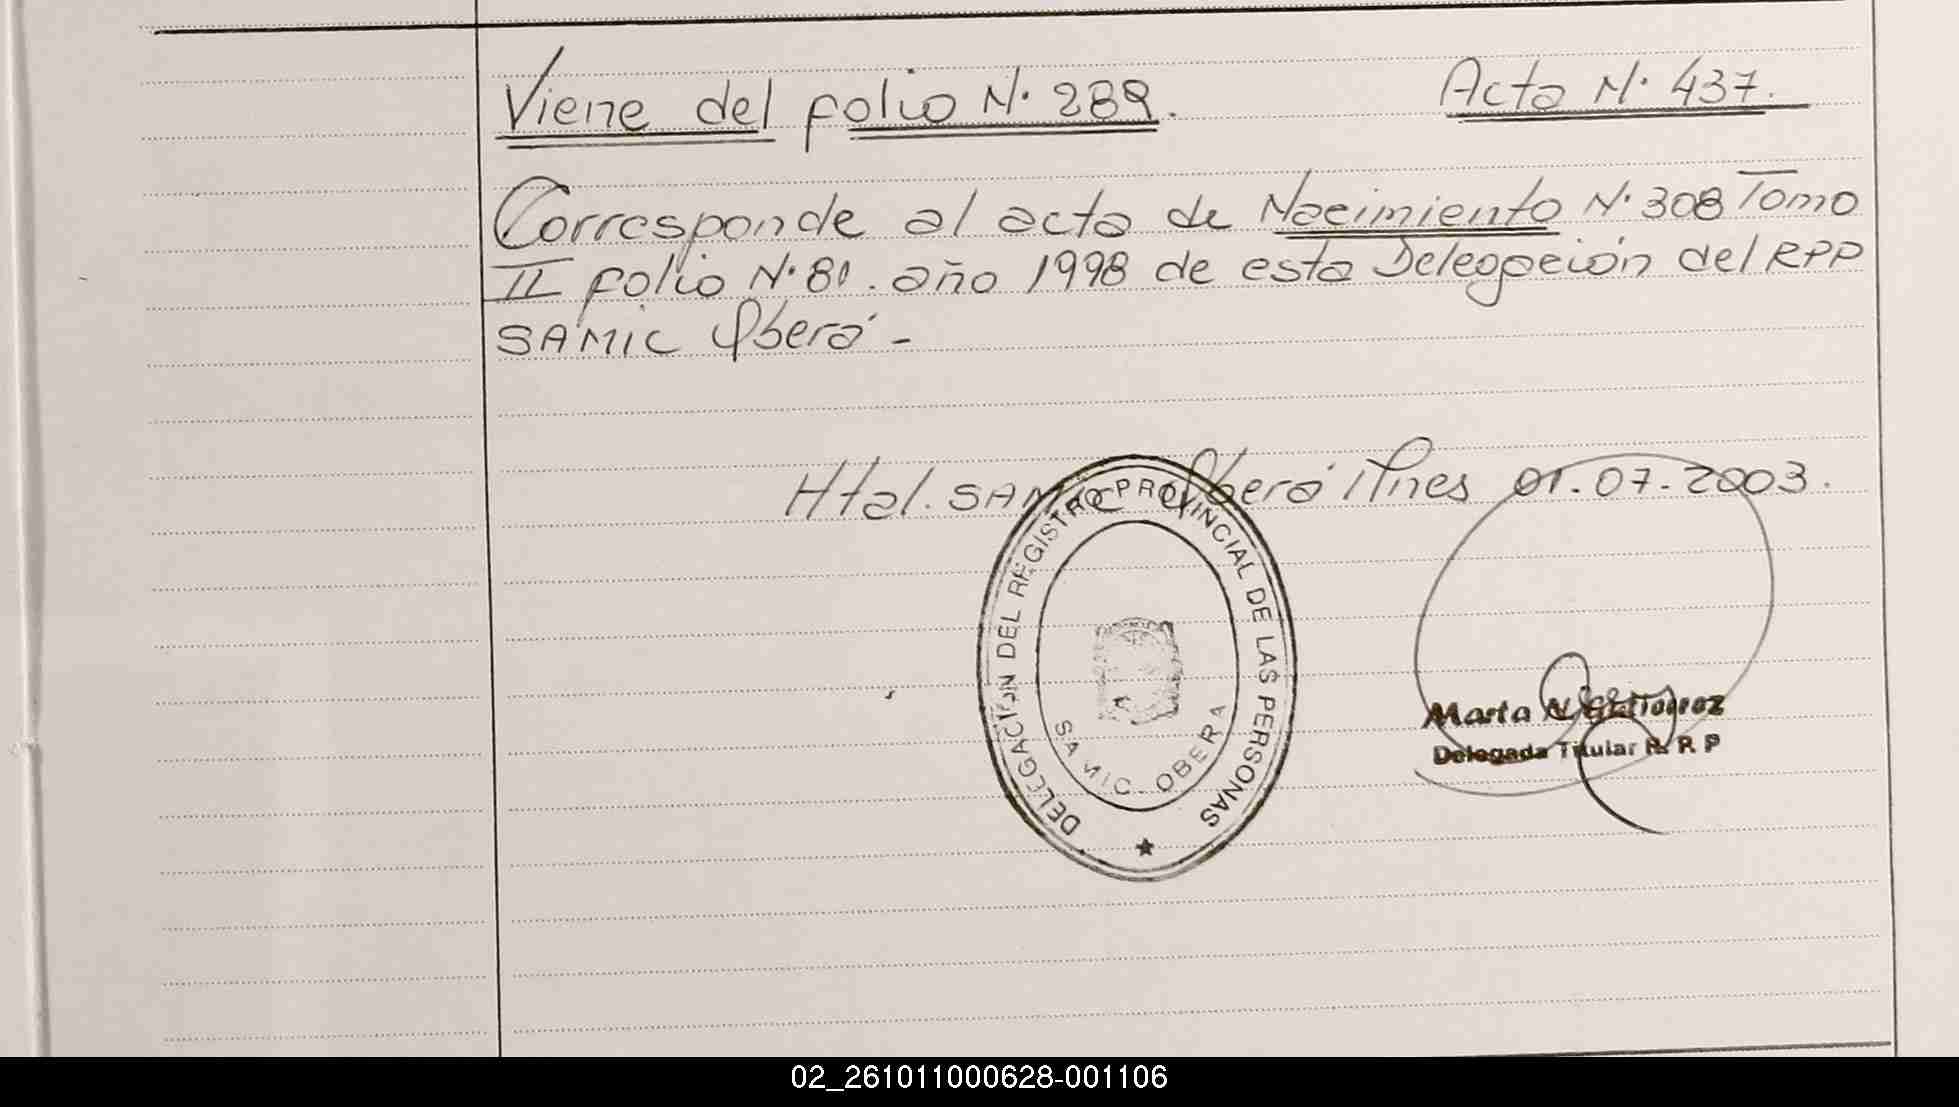 Viene del folio N. 289. Acta N. 437.
Corresponde al acta de Nacimiento N. 308 Tomo
II folio N. 81. año 1998 de esta Delegación del RPP
SAMIC Oberá -
Htal. SAMIC Oberá Mnes 01.07.2003.
DELEGACION DEL REGISTRO PROVINCIAL DE LAS PERSONAS
SAMIC. OBERA
Marta N. Gutierrez
Delegada Titular R. R P
02_261011000628-001106